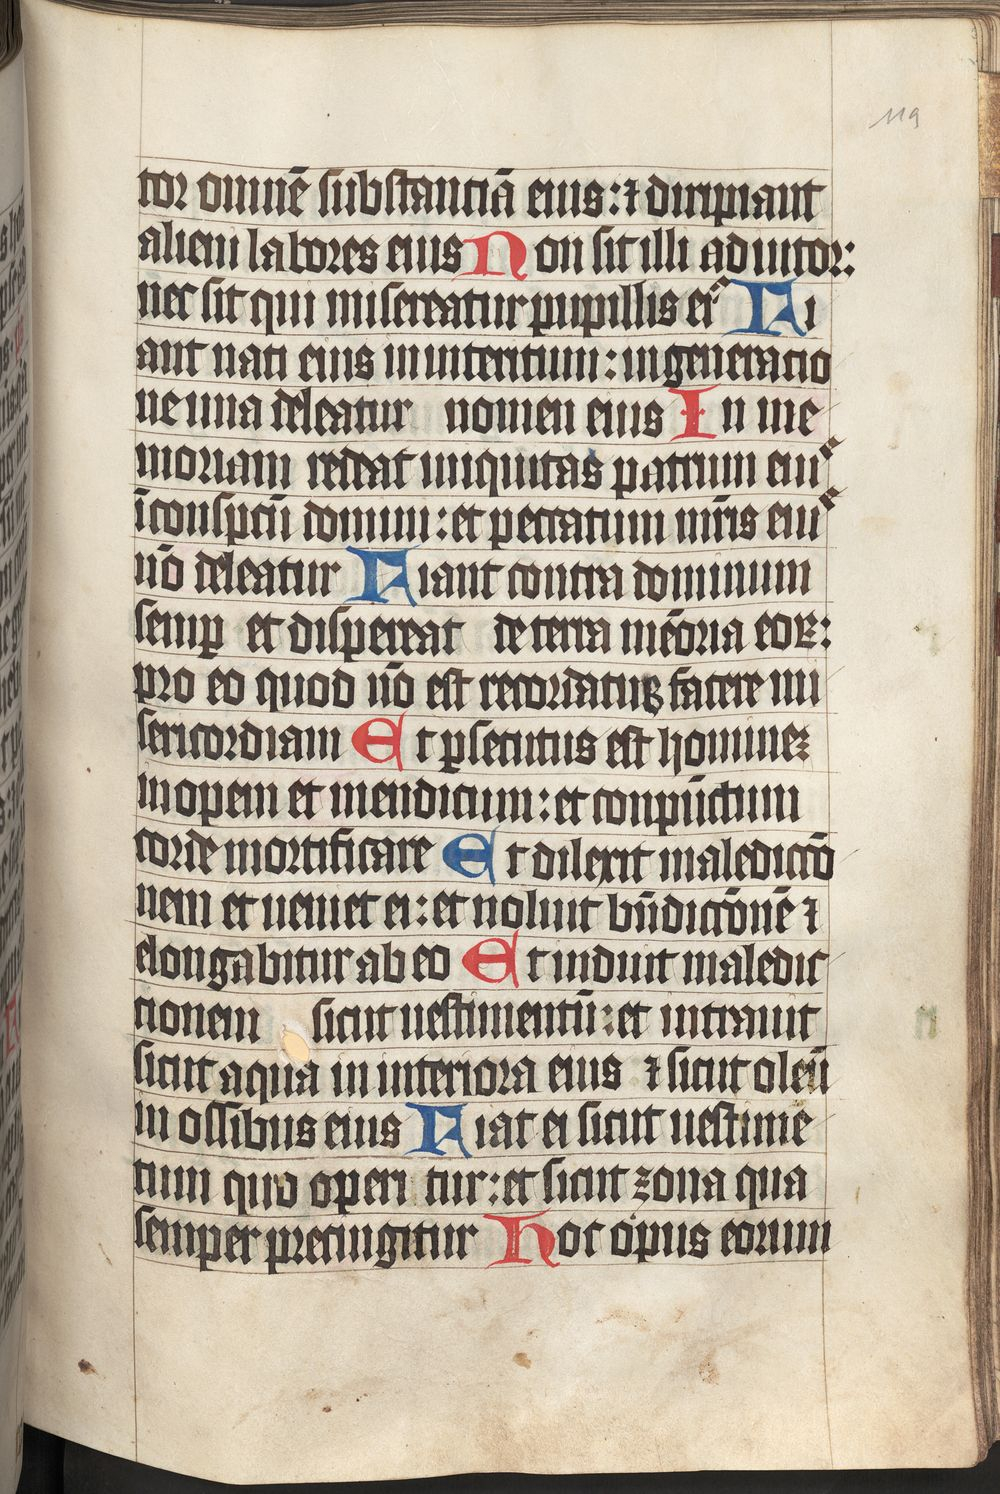 119
tor omnē substantiā eius: ⁊ diripiant
alieni labores eius Non sit illi adiutor:
nec sit qui misereatur pupillis eiꝰ Fi
ant nati eius in interitum: in generatio
ne una deleatur nomen eius In me
moriam redeat iniquitas patrum eiuˢ
ī conspectū domini: et peccatum mr̄is eiuˢ
nō deleatur Fiant contra dominum
semꝑ et dispereat de terra mēoria eoꝝ:
pro eo quod nō est recordatus facere mi
sericordiam Et ꝑsecutus est hominez
inopem et mendicum: et conpūctum
corde mortificare Et dilexit maledictō
nem et ueniet ei: et noluit bn̄dictōnē ⁊
elongabitur ab eo Et induit maledic
tionem sicut uestimentū: et intrauit
sicut aqua in interiora eius ⁊ sicut oleū
in ossibus eius Fiat ei sicut uestimē
tum quo operitur: et sicut zona qua
semper precingitur Hoc opus eorum